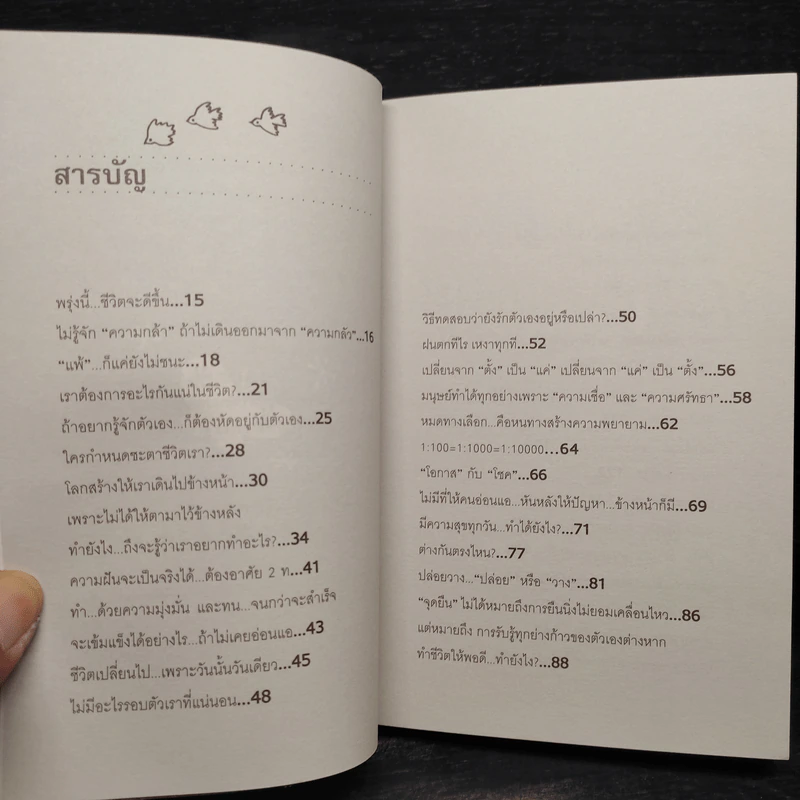 สารบัญ
พรุ่งนี้...ชีวิตจะดีขึ้น...15
ไม่รู้จัก “ความกล้า” ถ้าไม่เดินออกมาจาก “ความกลัว”...16
“แพ้”...ก็แค่ยังไม่ชนะ...18
เราต้องการอะไรกันแน่ในชีวิต?...21
ถ้าอยากรู้จักตัวเอง...ก็ต้องหัดอยู่กับตัวเอง...25
ใครกำหนดชะตาชีวิตเรา?...28
โลกสร้างให้เราเดินไปข้างหน้า...30
เพราะไม่ได้ให้ตามาไว้ข้างหลัง
ทำยังไง...ถึงจะรู้ว่าเราอยากทำอะไร?...34
ความฝันจะเป็นจริงได้...ต้องอาศัย 2 ท...41
ทำ...ด้วยความมุ่งมั่น และทน...จนกว่าจะสำเร็จ
จะเข้มแข็งได้อย่างไร...ถ้าไม่เคยอ่อนแอ...43
ชีวิตเปลี่ยนไป...เพราะวันนั้นวันเดียว...45
ไม่มีอะไรรอบตัวเราที่แน่นอน...48
วิธีทดสอบว่ายังรักตัวเองอยู่หรือเปล่า?...50
ฝนตกทีไร เหงาทุกที...52
เปลี่ยนจาก “ตั้ง” เป็น “แค่” เปลี่ยนจาก “แค่” เป็น “ตั้ง”...56
มนุษย์ทำได้ทุกอย่างเพราะ “ความเชื่อ” และ “ความศรัทธา”...58
หมดทางเลือก...คือหนทางสร้างความพยายาม...62
1:100=1:1000=1:10000...64
“โอกาส” กับ “โชค”...66
ไม่มีที่ให้คนอ่อนแอ...หันหลังให้ปัญหา...ข้างหน้าก็มี...69
มีความสุขทุกวัน...ทำได้ยังไง?...71
ต่างกันตรงไหน?...77
ปล่อยวาง...“ปล่อย” หรือ “วาง”...81
“จุดยืน” ไม่ได้หมายถึงการยืนนิ่งไม่ยอมเคลื่อนไหว...86
แต่หมายถึง การรับรู้ทุกย่างก้าวของตัวเองต่างหาก
ทำชีวิตให้พอดี...ทำยังไง?...88